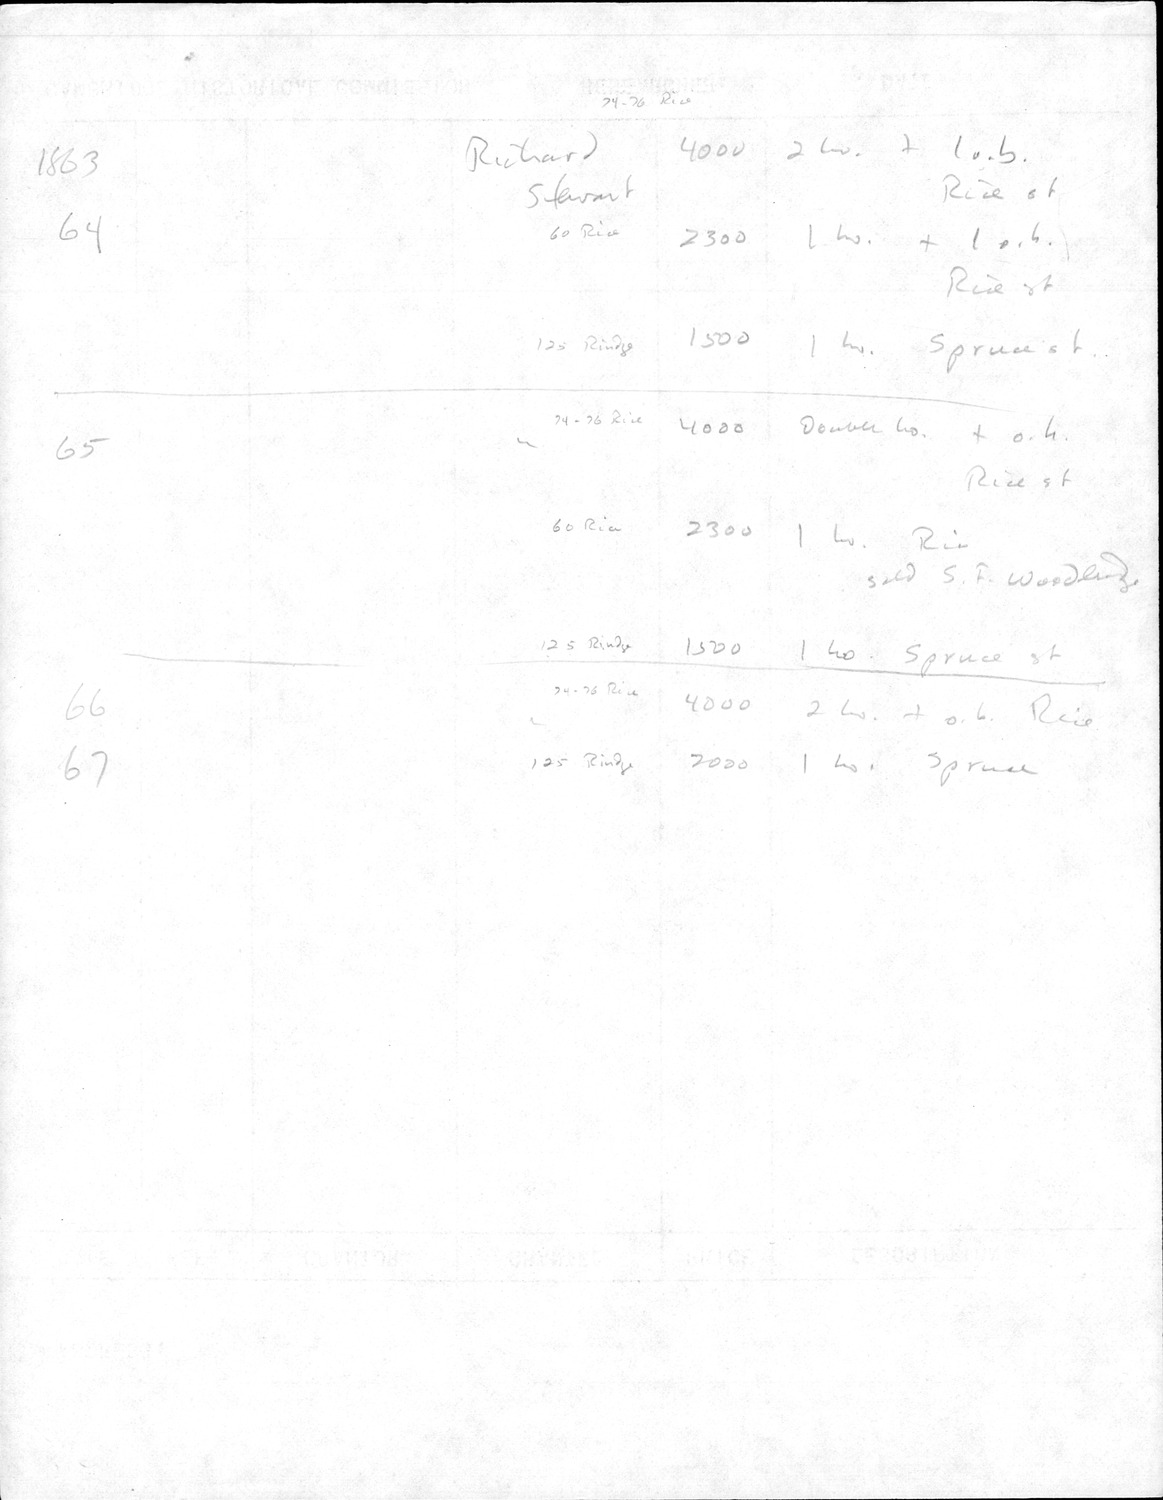 74-76 Rice
1863 Richard 4000 2 ho. + 1 o.b.
Stewart Rice st
64 60 Rice 2300 1 ho. + 1 o.h.
Rice st
125 Rindge 1500 1 ho. Spruce st.
74-76 Rice
65 " 4000 Double ho. + o.h.
Rice st
60 Rice 2300 1 ho. Rice
sold S. F. Woodbridge
125 Rindge 1500 1 ho. Spruce st
74-76 Rice
66 " 4000 2 ho. + o.b. Rice
67 125 Rindge 2000 1 ho. Spruce